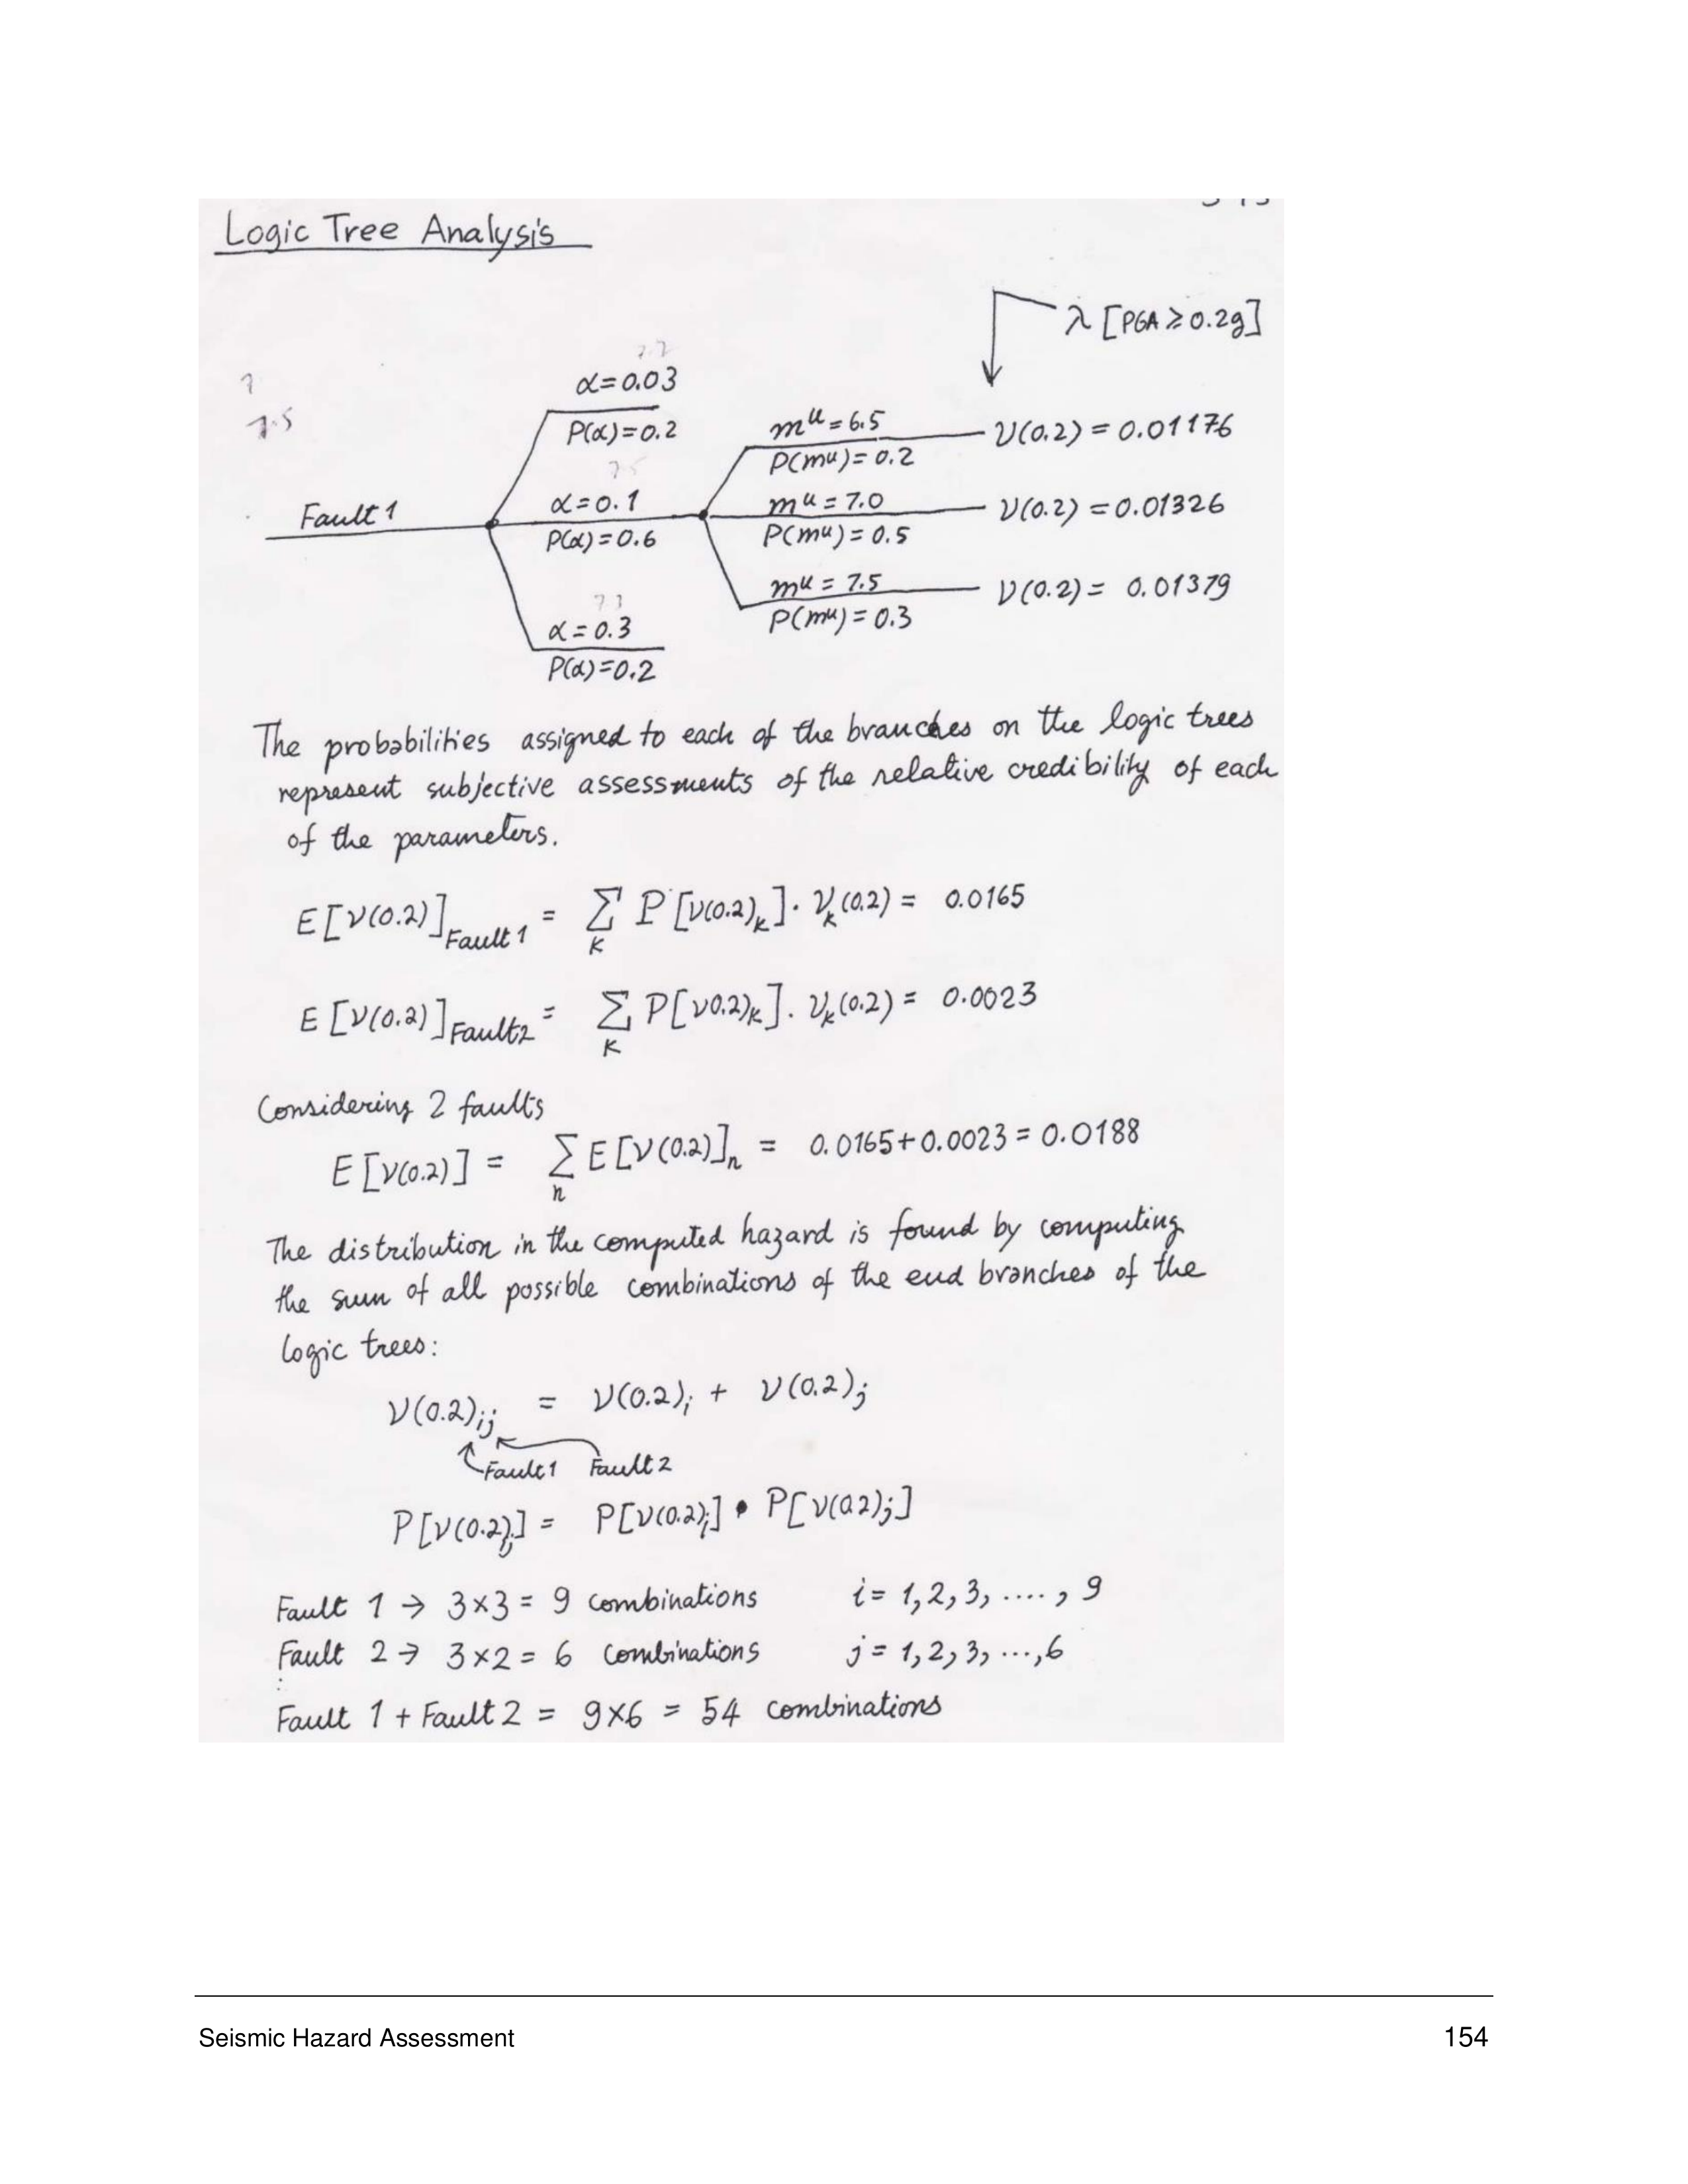 Logic Tree Analysis
λ [PGA ≥ 0.2g]
α = 0.03
P(α) = 0.2
m^u = 6.5
P(m^u) = 0.2
ν(0.2) = 0.01176
Fault 1
α = 0.1
P(α) = 0.6
m^u = 7.0
P(m^u) = 0.5
ν(0.2) = 0.01326
m^u = 7.5
P(m^u) = 0.3
ν(0.2) = 0.01379
α = 0.3
P(α) = 0.2
7.5
The probabilities assigned to each of the branches on the logic trees
represent subjective assessments of the relative credibility of each
of the parameters.
E[ν(0.2)]_Fault 1 = Σ_K P[ν(0.2)_k] · ν_k(0.2) = 0.0165
E[ν(0.2)]_Fault 2 = Σ_K P[ν0.2)_k] . ν_k(0.2) = 0.0023
Considering 2 faults
E[ν(0.2)] = Σ_n E[ν(0.2)]_n = 0.0165 + 0.0023 = 0.0188
The distribution in the computed hazard is found by computing
the sum of all possible combinations of the end branches of the
logic trees:
ν(0.2)_ij = ν(0.2)_i + ν(0.2)_j
Fault 1 Fault 2
P[ν(0.2)_ij] = P[ν(0.2)_i] • P[ν(0.2)_j]
Fault 1 → 3×3 = 9 combinations i = 1, 2, 3, ...., 9
Fault 2 → 3×2 = 6 combinations j = 1, 2, 3, ..., 6
Fault 1 + Fault 2 = 9×6 = 54 combinations
Seismic Hazard Assessment 154